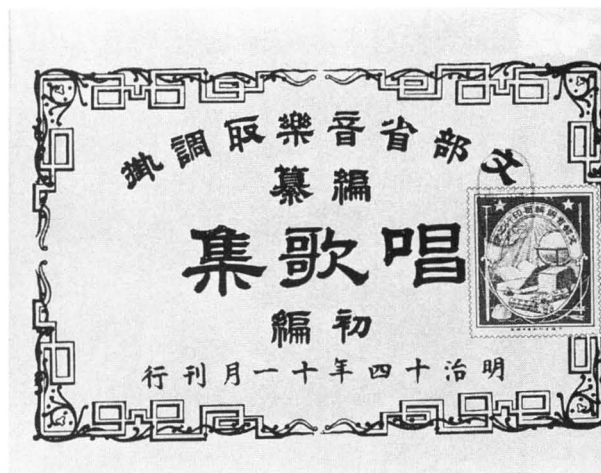 文部省音樂取調掛
編纂
唱歌集
初編
明治十四年十一月刊行